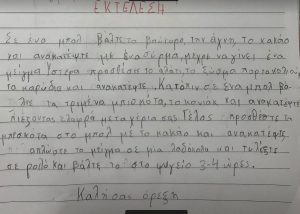 ΕΚΤΕΛΕΣΗ
Σε ένα μπολ βάλετε το βούτυρο, την άχνη, το κακάο
και ανακατέψτε με ένα σύρμα, μέχρι να γίνει ένα
μείγμα. Ύστερα προσθέστε το αλάτι, το ξύσμα πορτοκαλιού
τα καρύδια και ανακατέψτε. Κατόπιν σε ένα μπολ βά-
λτε τα τριμμένα μπισκότα, το κονιάκ και ανακατέψτε
πιέζοντας ελαφρά με τα χέρια σας. Τέλος προσθέστε τα
μπισκότα στο μπολ με το κακάο και ανακατέψτε,
απλώστε το μείγμα σε μια λαδόκολα και τυλίξτε
σε ρολό και βάλτε το στο ψυγείο 3-4 ώρες.
Καλή σας όρεξη